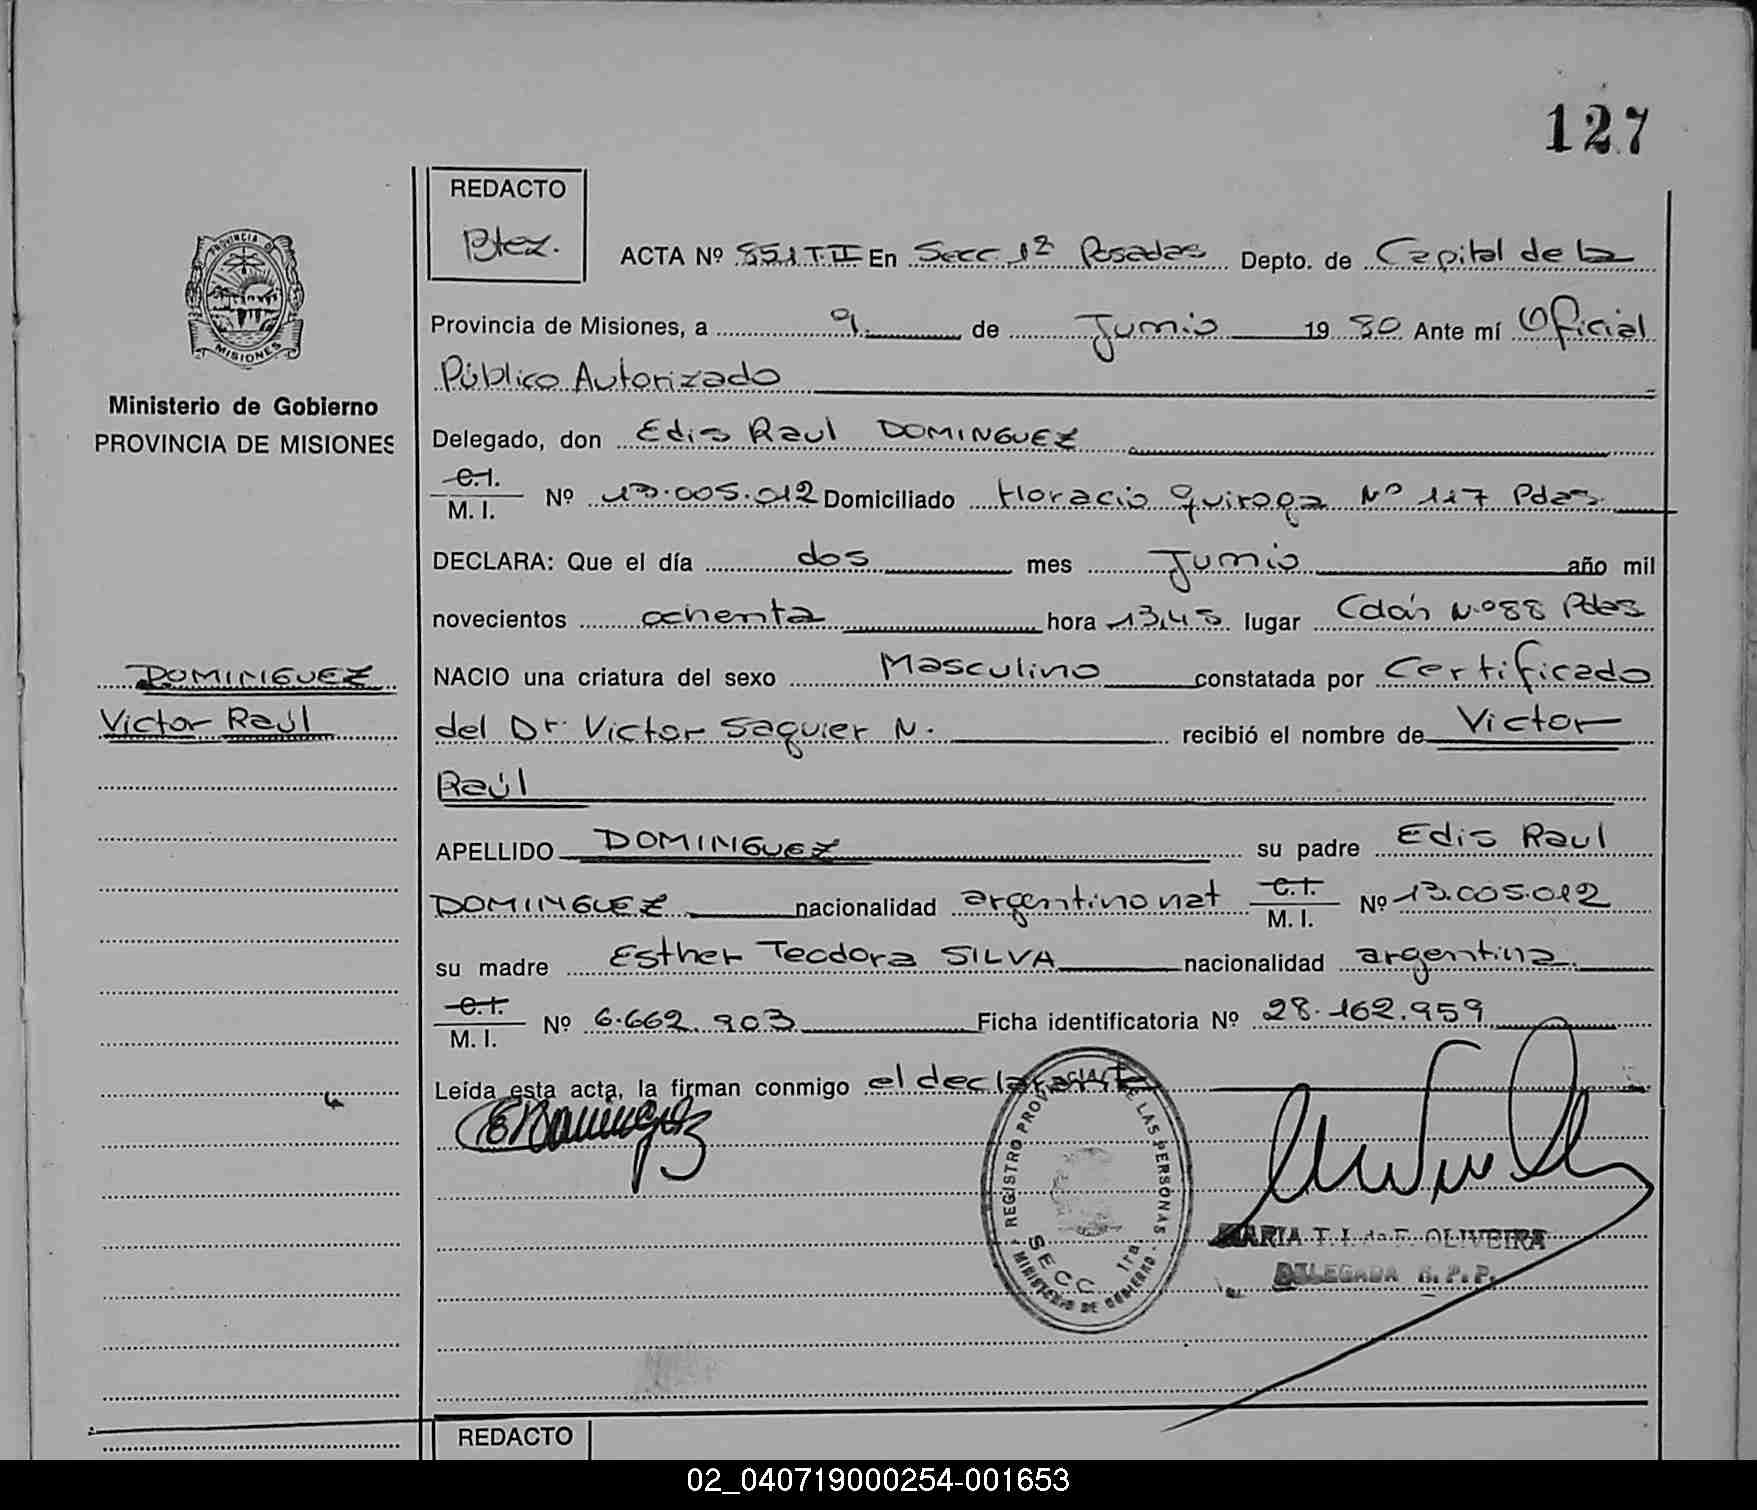 127
REDACTO
Btez.
ACTA Nº 551 T.II En Secc 1ª Posadas Depto. de Capital de la
Provincia de Misiones, a 9 de Junio 19 80 Ante mí Oficial
Público Autorizado
Delegado, don Edis Raul DOMINGUEZ
C.I.
M. I. Nº 13.005.012 Domiciliado Horacio Quiroga Nº 117 Pdas.
DECLARA: Que el día dos mes Junio año mil
novecientos ochenta hora 13,45 lugar Cdón Nº 88 Pdas
NACIO una criatura del sexo Masculino constatada por Certificado
del Dr. Victor Saquier N. recibió el nombre de Victor
Raúl
APELLIDO DOMINGUEZ su padre Edis Raul
DOMINGUEZ nacionalidad argentino nat C.I. M. I. Nº 13.005.012
su madre Esther Teodora SILVA nacionalidad argentina.
C.I.
M. I. Nº 6.662.903 Ficha identificatoria Nº 28.162.959
Leída esta acta, la firman conmigo el declarante
PROVINCIA DE
MISIONES
Ministerio de Gobierno
PROVINCIA DE MISIONES
DOMINGUEZ
Victor Raúl
REGISTRO PROVINCIAL DE LAS PERSONAS
SECC. 1ra
MINISTERIO DE GOBIERNO
MARIA T. I. de F. OLIVEIRA
DELEGADA R. P. P.
REDACTO
02_040719000254-001653